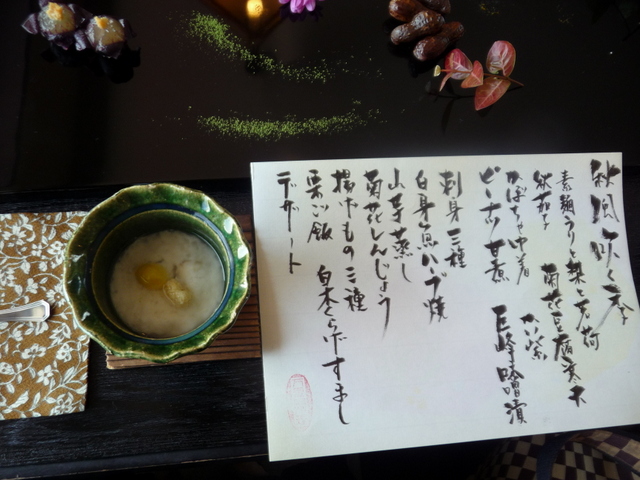 秋風吹く季
素麺うりと梨と茗荷
秋茄子 菊花豆腐寒木
かぼちゃ巾着
ピーナツ甘煮 巨峰味噌漬
刺身三種
白身魚ハーブ焼
山芋蒸し
菊花しんじょう
揚げもの三種
栗ご飯 白木くらげすまし
デザート